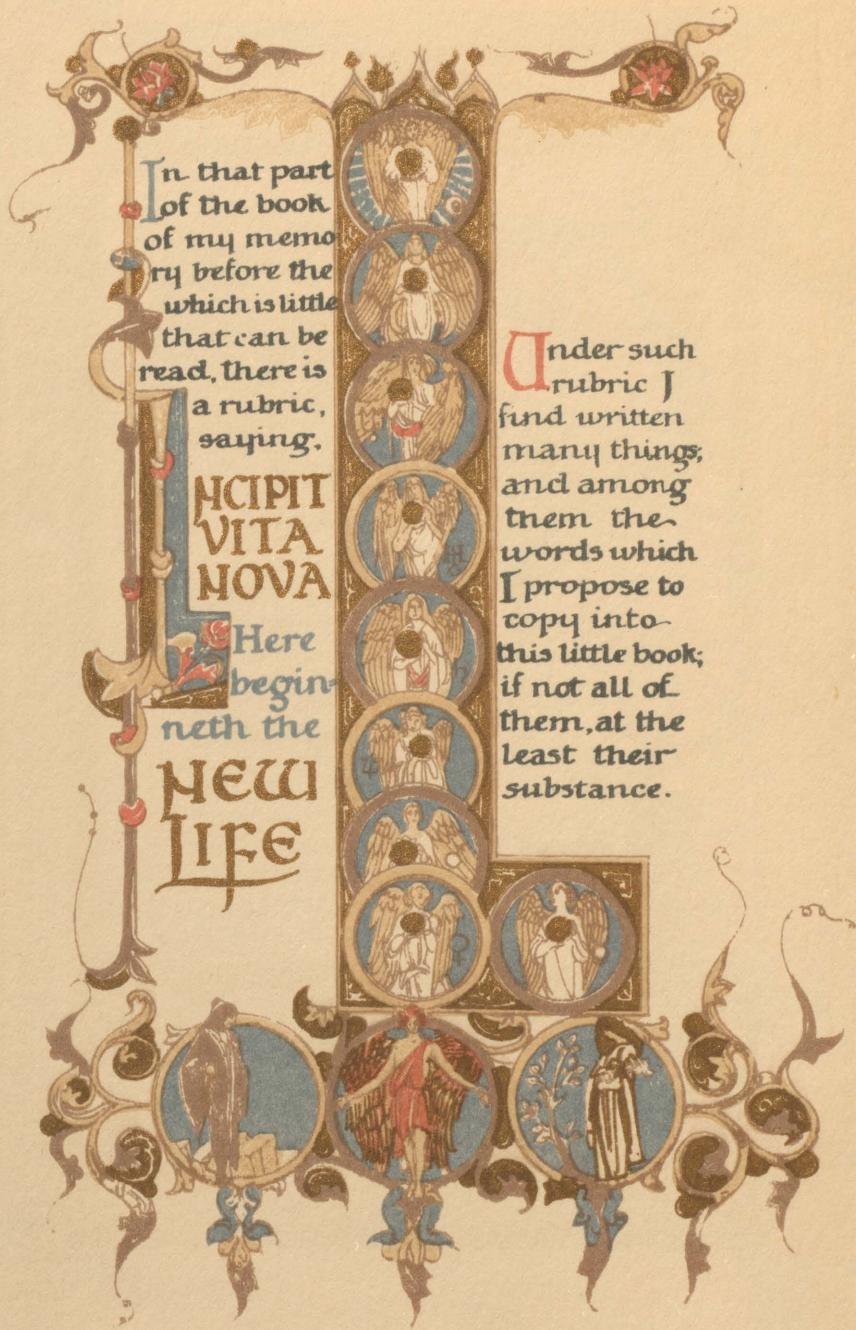 In that part
of the book
of my memo
ry before the
which is little
that can be
read, there is
a rubric,
saying,
INCIPIT
VITA
NOVA
Here
begin-
neth the
NEW
LIFE
Under such
rubric I
find written
many things;
and among
them the
words which
I propose to
copy into
this little book;
if not all of
them, at the
least their
substance.